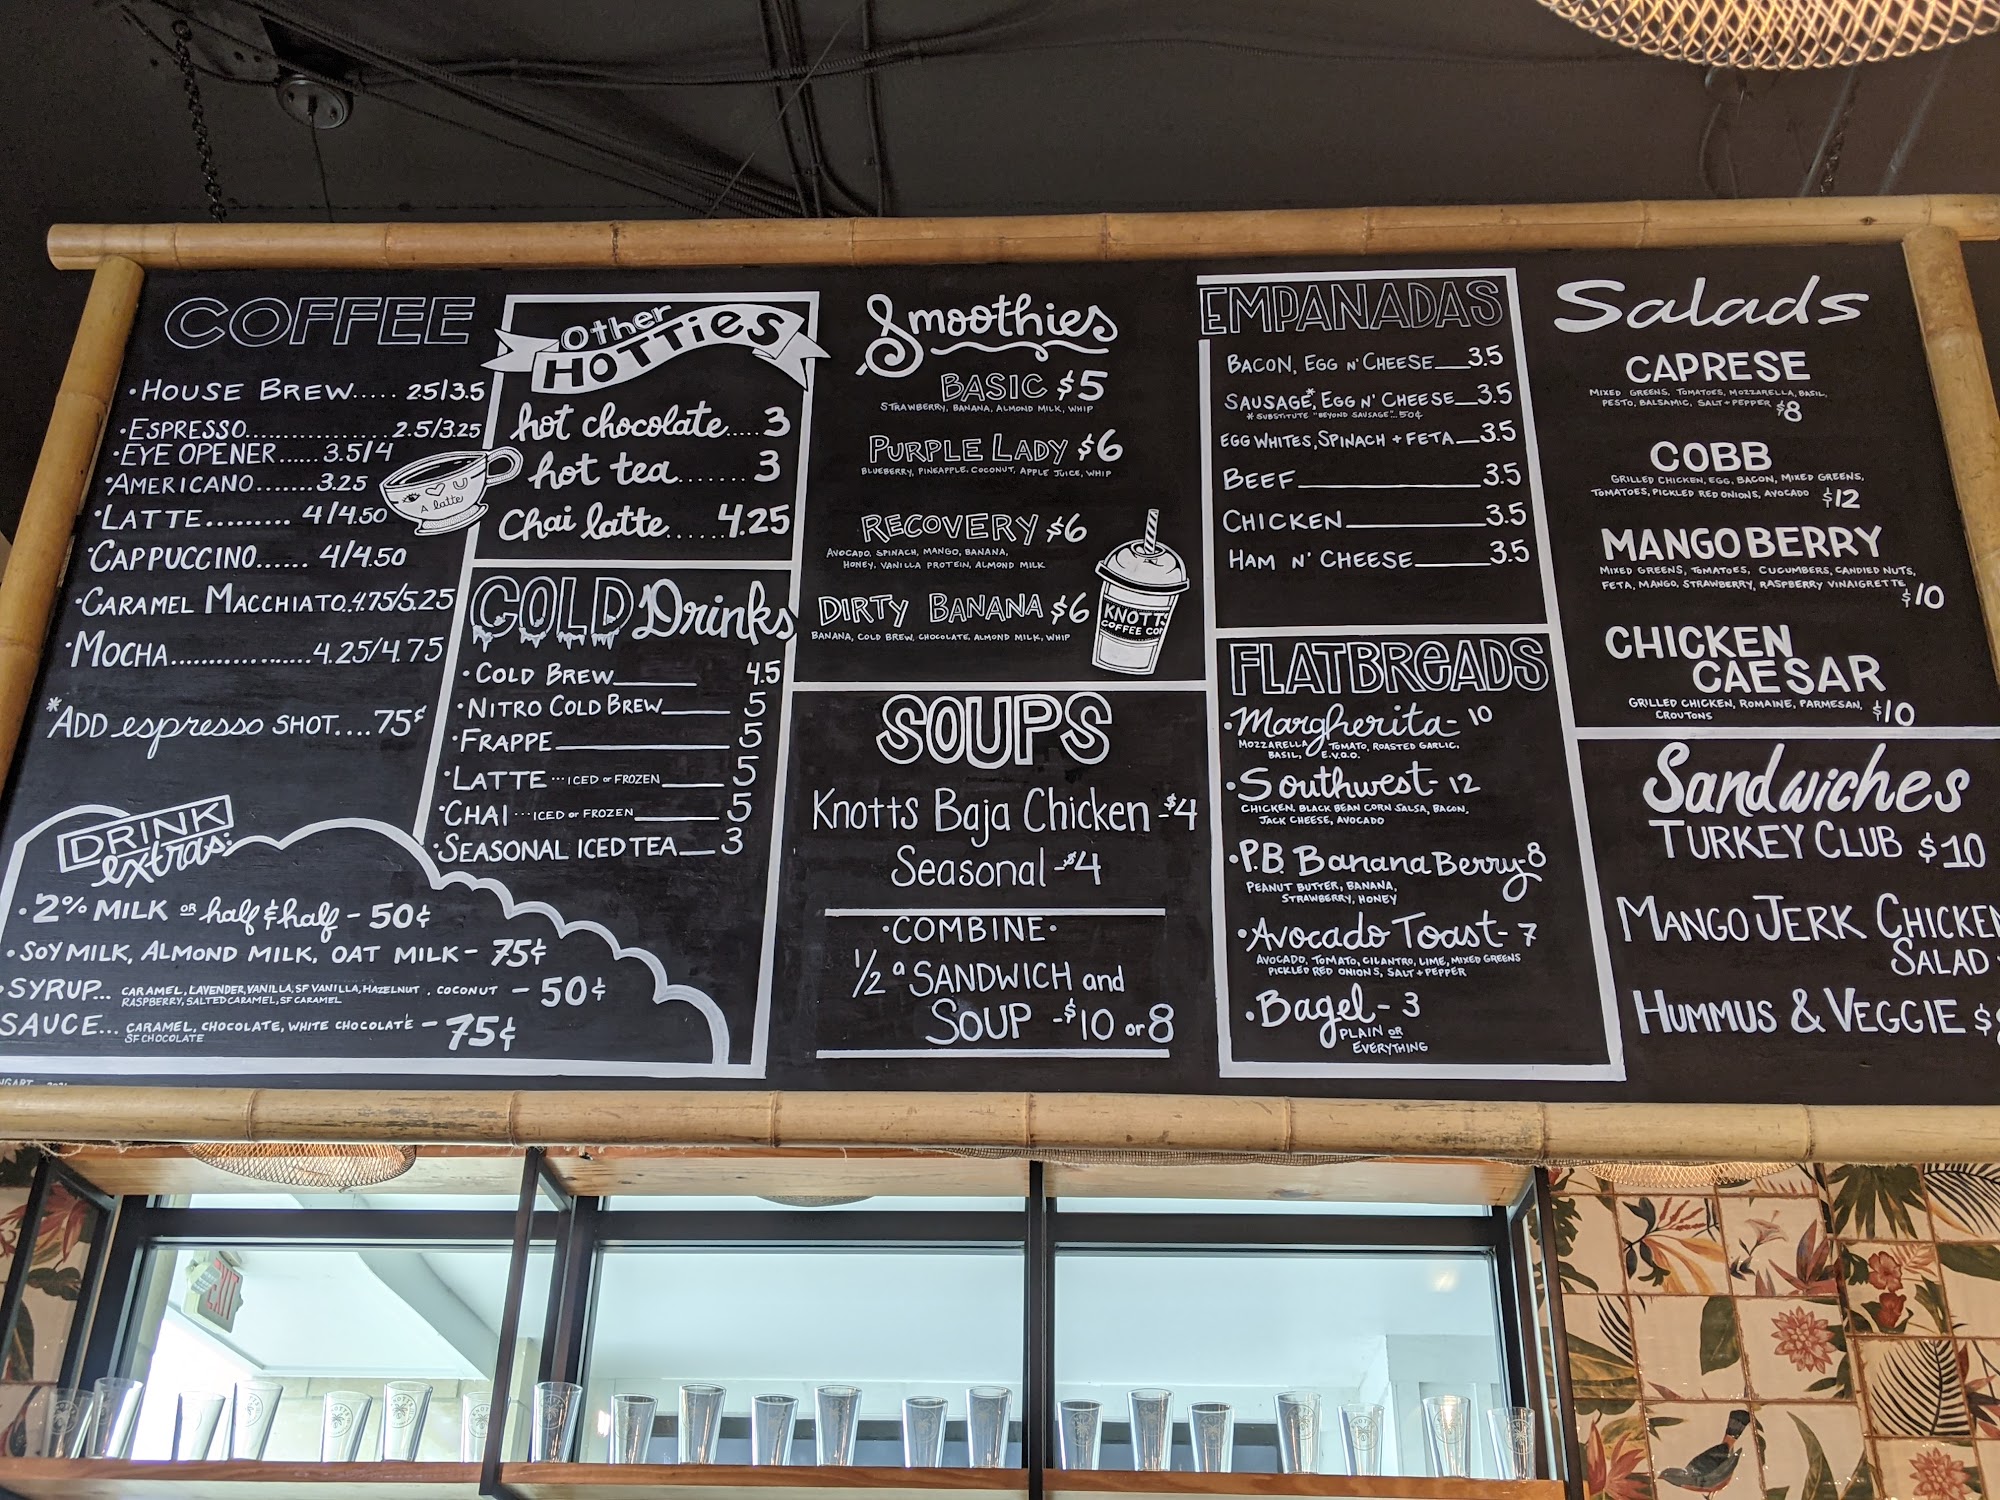 COFFEE
•HOUSE BREW..... 2.5/3.5
•ESPRESSO................ 2.5/3.25
•EYE OPENER...... 3.5/4
•AMERICANO.......3.25
•LATTE.......... 4/4.50
•CAPPUCCINO...... 4/4.50
•CARAMEL MACCHIATO.4.75/5.25
•MOCHA.................4.25/4.75
*ADD espresso SHOT....75¢
A latte
DRINK
extras:
•2% MILK OR half & half - 50¢
•SOY MILK, ALMOND MILK, OAT MILK - 75¢
•SYRUP... CARAMEL, LAVENDER, VANILLA, SF VANILLA, HAZELNUT, COCONUT - 50¢
RASPBERRY, SALTED CARAMEL, SF CARAMEL
SAUCE... CARAMEL, CHOCOLATE, WHITE CHOCOLATE - 75¢
SF CHOCOLATE
Other
HOTTIES
hot chocolate.....3
hot tea....... 3
Chai latte......4.25
COLD Drinks
•COLD BREW 4.5
•NITRO COLD BREW 5
•FRAPPE 5
•LATTE ...ICED OR FROZEN 5
•CHAI ...ICED OR FROZEN 5
•SEASONAL ICED TEA 3
Smoothies
BASIC $5
STRAWBERRY, BANANA, ALMOND MILK, WHIP
PURPLE LADY $6
BLUEBERRY, PINEAPPLE, COCONUT, APPLE JUICE, WHIP
RECOVERY $6
AVOCADO, SPINACH, MANGO, BANANA,
HONEY, VANILLA PROTEIN, ALMOND MILK
DIRTY BANANA $6
BANANA, COLD BREW, CHOCOLATE, ALMOND MILK, WHIP
KNOTTS
COFFEE CO
SOUPS
Knotts Baja Chicken - $4
Seasonal - $4
•COMBINE•
1/2 a SANDWICH and
SOUP - $10 or 8
EMPANADAS
BACON, EGG N' CHEESE 3.5
SAUSAGE*, EGG N' CHEESE 3.5
*SUBSTITUTE "BEYOND SAUSAGE"... 50¢
EGG WHITES, SPINACH + FETA 3.5
BEEF 3.5
CHICKEN 3.5
HAM N' CHEESE 3.5
FLATBREADS
•Margherita - 10
MOZZARELLA, TOMATO, ROASTED GARLIC,
BASIL, E.V.O.O.
•Southwest - 12
CHICKEN, BLACK BEAN CORN SALSA, BACON,
JACK CHEESE, AVOCADO
•P.B. Banana Berry - 8
PEANUT BUTTER, BANANA,
STRAWBERRY, HONEY
•Avocado Toast - 7
AVOCADO, TOMATO, CILANTRO, LIME, MIXED GREENS
PICKLED RED ONIONS, SALT + PEPPER
•Bagel - 3
PLAIN OR
EVERYTHING
Salads
CAPRESE
MIXED GREENS, TOMATOES, MOZZARELLA, BASIL,
PESTO, BALSAMIC, SALT + PEPPER $8
COBB
GRILLED CHICKEN, EGG, BACON, MIXED GREENS,
TOMATOES, PICKLED RED ONIONS, AVOCADO $12
MANGO BERRY
MIXED GREENS, TOMATOES, CUCUMBERS, CANDIED NUTS,
FETA, MANGO, STRAWBERRY, RASPBERRY VINAIGRETTE $10
CHICKEN
CAESAR
GRILLED CHICKEN, ROMAINE, PARMESAN,
CROUTONS $10
Sandwiches
TURKEY CLUB $10
MANGO JERK CHICKEN
SALAD
HUMMUS & VEGGIE $
EXIT